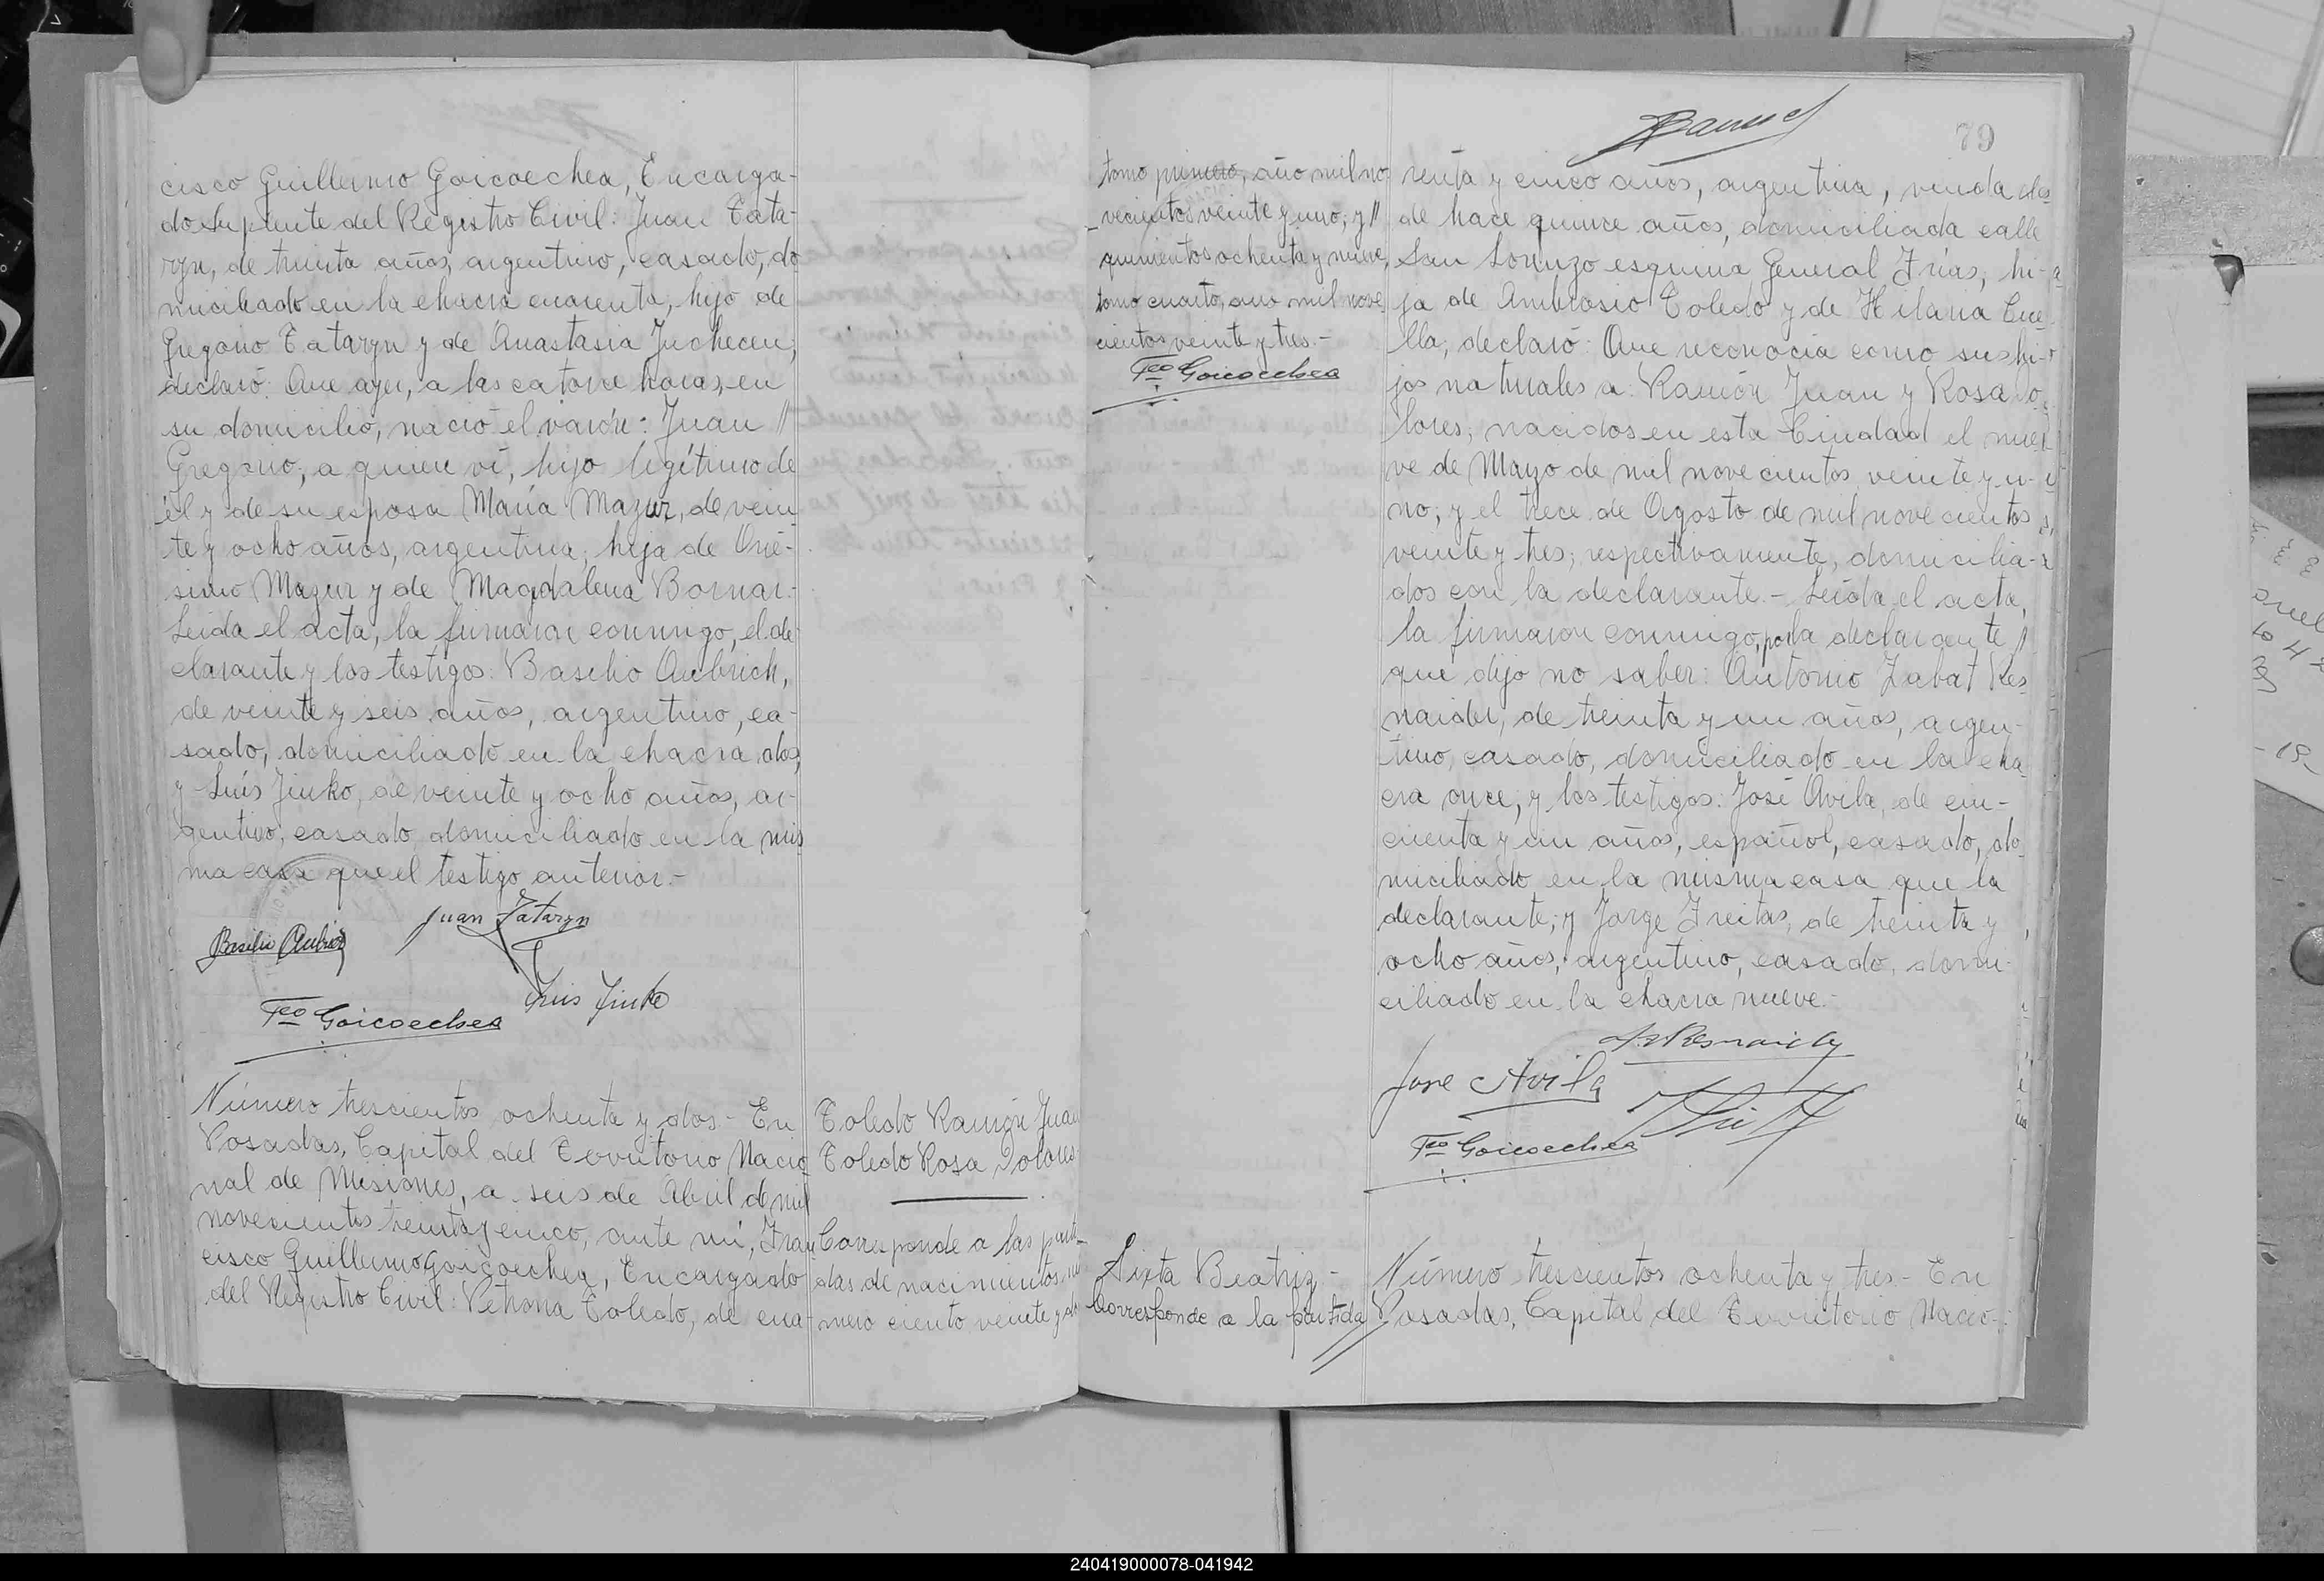 cisco Guillermo Goicoechea, Encarga-
do Suplente del Registro Civil: Juan Tata-
ryn, de treinta años, argentino, casado, do
miciliado en la chacra cuarenta, hijo de
Gregorio Tataryn y de Anastasia Juchecen,
declaró: Que ayer, a las catorce horas, en
su domicilio, nació el varón: Juan //
Gregorio, a quien ví, hijo legítimo de
él y de su esposa María Mazur, de vein
te y ocho años, argentina, hija de Oné-
simo Mazur y de Magdalena Bornar.-
Leída el acta, la firmaron conmigo, el de-
clarante y los testigos: Basilio Aubrich,
de veinte y seis años, argentino, ca-
sado, domiciliado en la chacra dos,
y Luís Jinko, de veinte y ocho años, ar-
gentino, casado, domiciliado en la mis
ma casa que el testigo anterior.-
Juan Tataryn
Basilio
Luis Jinko
Fco Goicoechea
Número trescientos ochenta y dos.- En
Posadas, Capital del Territorio Nacio
nal de Misiones, a seis de Abril de mil
novecientos treinta y cinco, ante mí, Fran
cisco Guillermo Goicoechea, Encargado
del Registro Civil: Petrona Toledo, de cua-
Toledo Ramón Juan
Toledo Rosa Dolores
Corresponde a las parti-
das de nacimientos, nú
mero ciento veinte y
tomo primero, año mil no
vecientos veinte y uno; y //
quinientos ochenta y nueve,
tomo cuarto, año mil nove
cientos veinte y tres.-
Fco Goicoechea
79
renta y cinco años, argentina, viuda des
de hace quince años, domiciliada calle
San Lorenzo esquina General Frías, hi-
ja de Ambrosio Toledo y de Hilaria Cue-
lla, declaró: Que reconocía como sus hi-
jos naturales a: Ramón Juan y Rosa Do
lores, nacidos en esta Ciudad el nue-
ve de Mayo de mil novecientos veinte y u-
no; y el trece de Agosto de mil novecientos
veinte y tres; respectivamente, domicilia-
dos con la declarante.- Leída el acta,
la firmaron conmigo, por la declarante //
que dijo no saber: Antonio Zabat Res
naider, de treinta y un años, argen-
tino, casado, domiciliado en la cha
cra once, y los testigos: José Avila, de cin-
cuenta y un años, español, casado, do
miciliado en la misma casa que la
declarante; y Jorge Freitas, de treinta y
ocho años, argentino, casado, domi-
ciliado en la chacra nueve.-
Jose Avila
Fco Goicoechea
Sixta Beatriz -
Corresponde a la partida
Número trescientos ochenta y tres.- En
Posadas, Capital del Territorio Nacio-
240419000078-041942